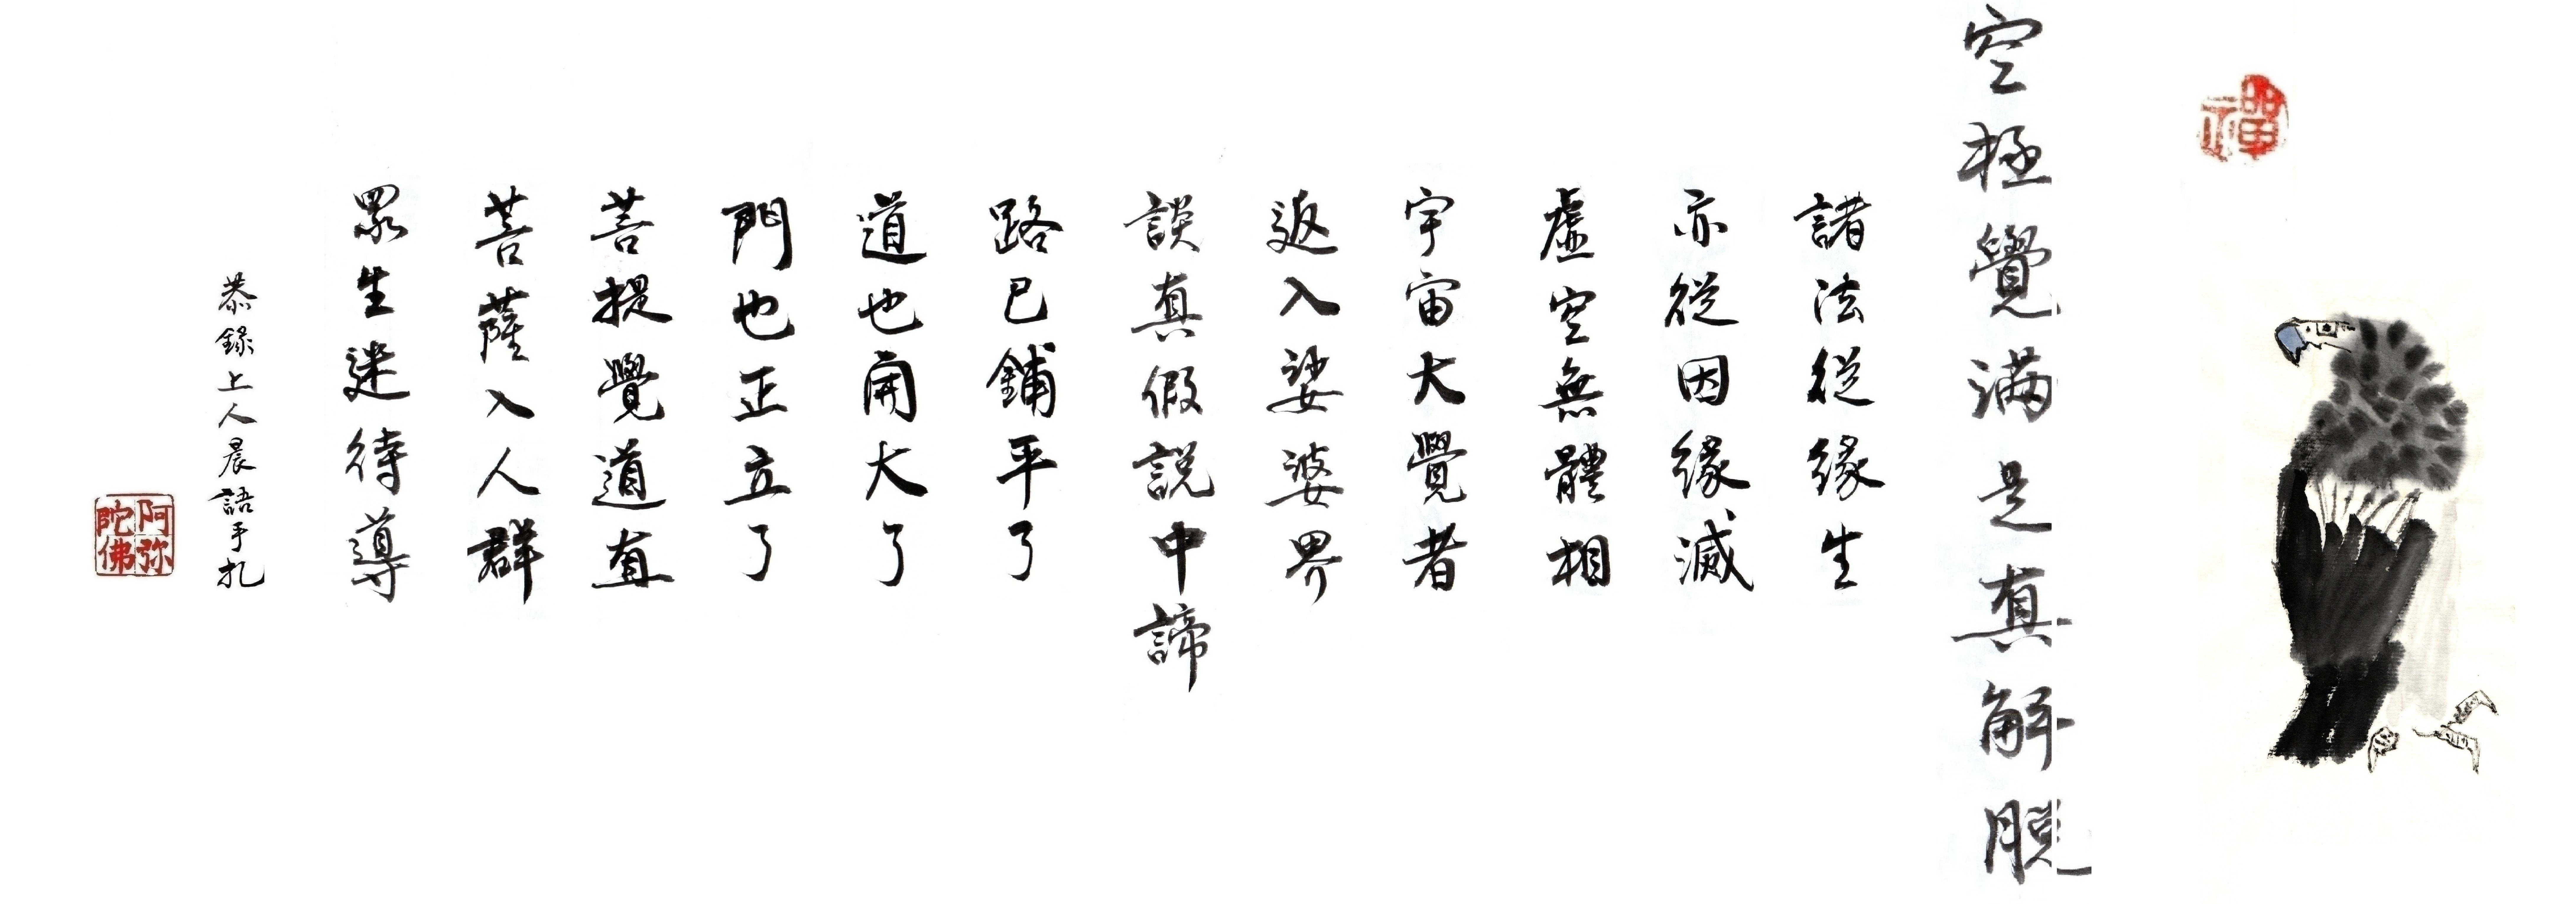 禪
空極覺滿是真解脫
諸法從緣生
亦從因緣滅
虛空無體相
宇宙大覺者
返入娑婆界
談真假説中諦
路已鋪平了
道也開大了
門也正立了
菩提覺道直
菩薩入人群
眾生迷待導
恭錄上人晨語手札
阿弥陀佛